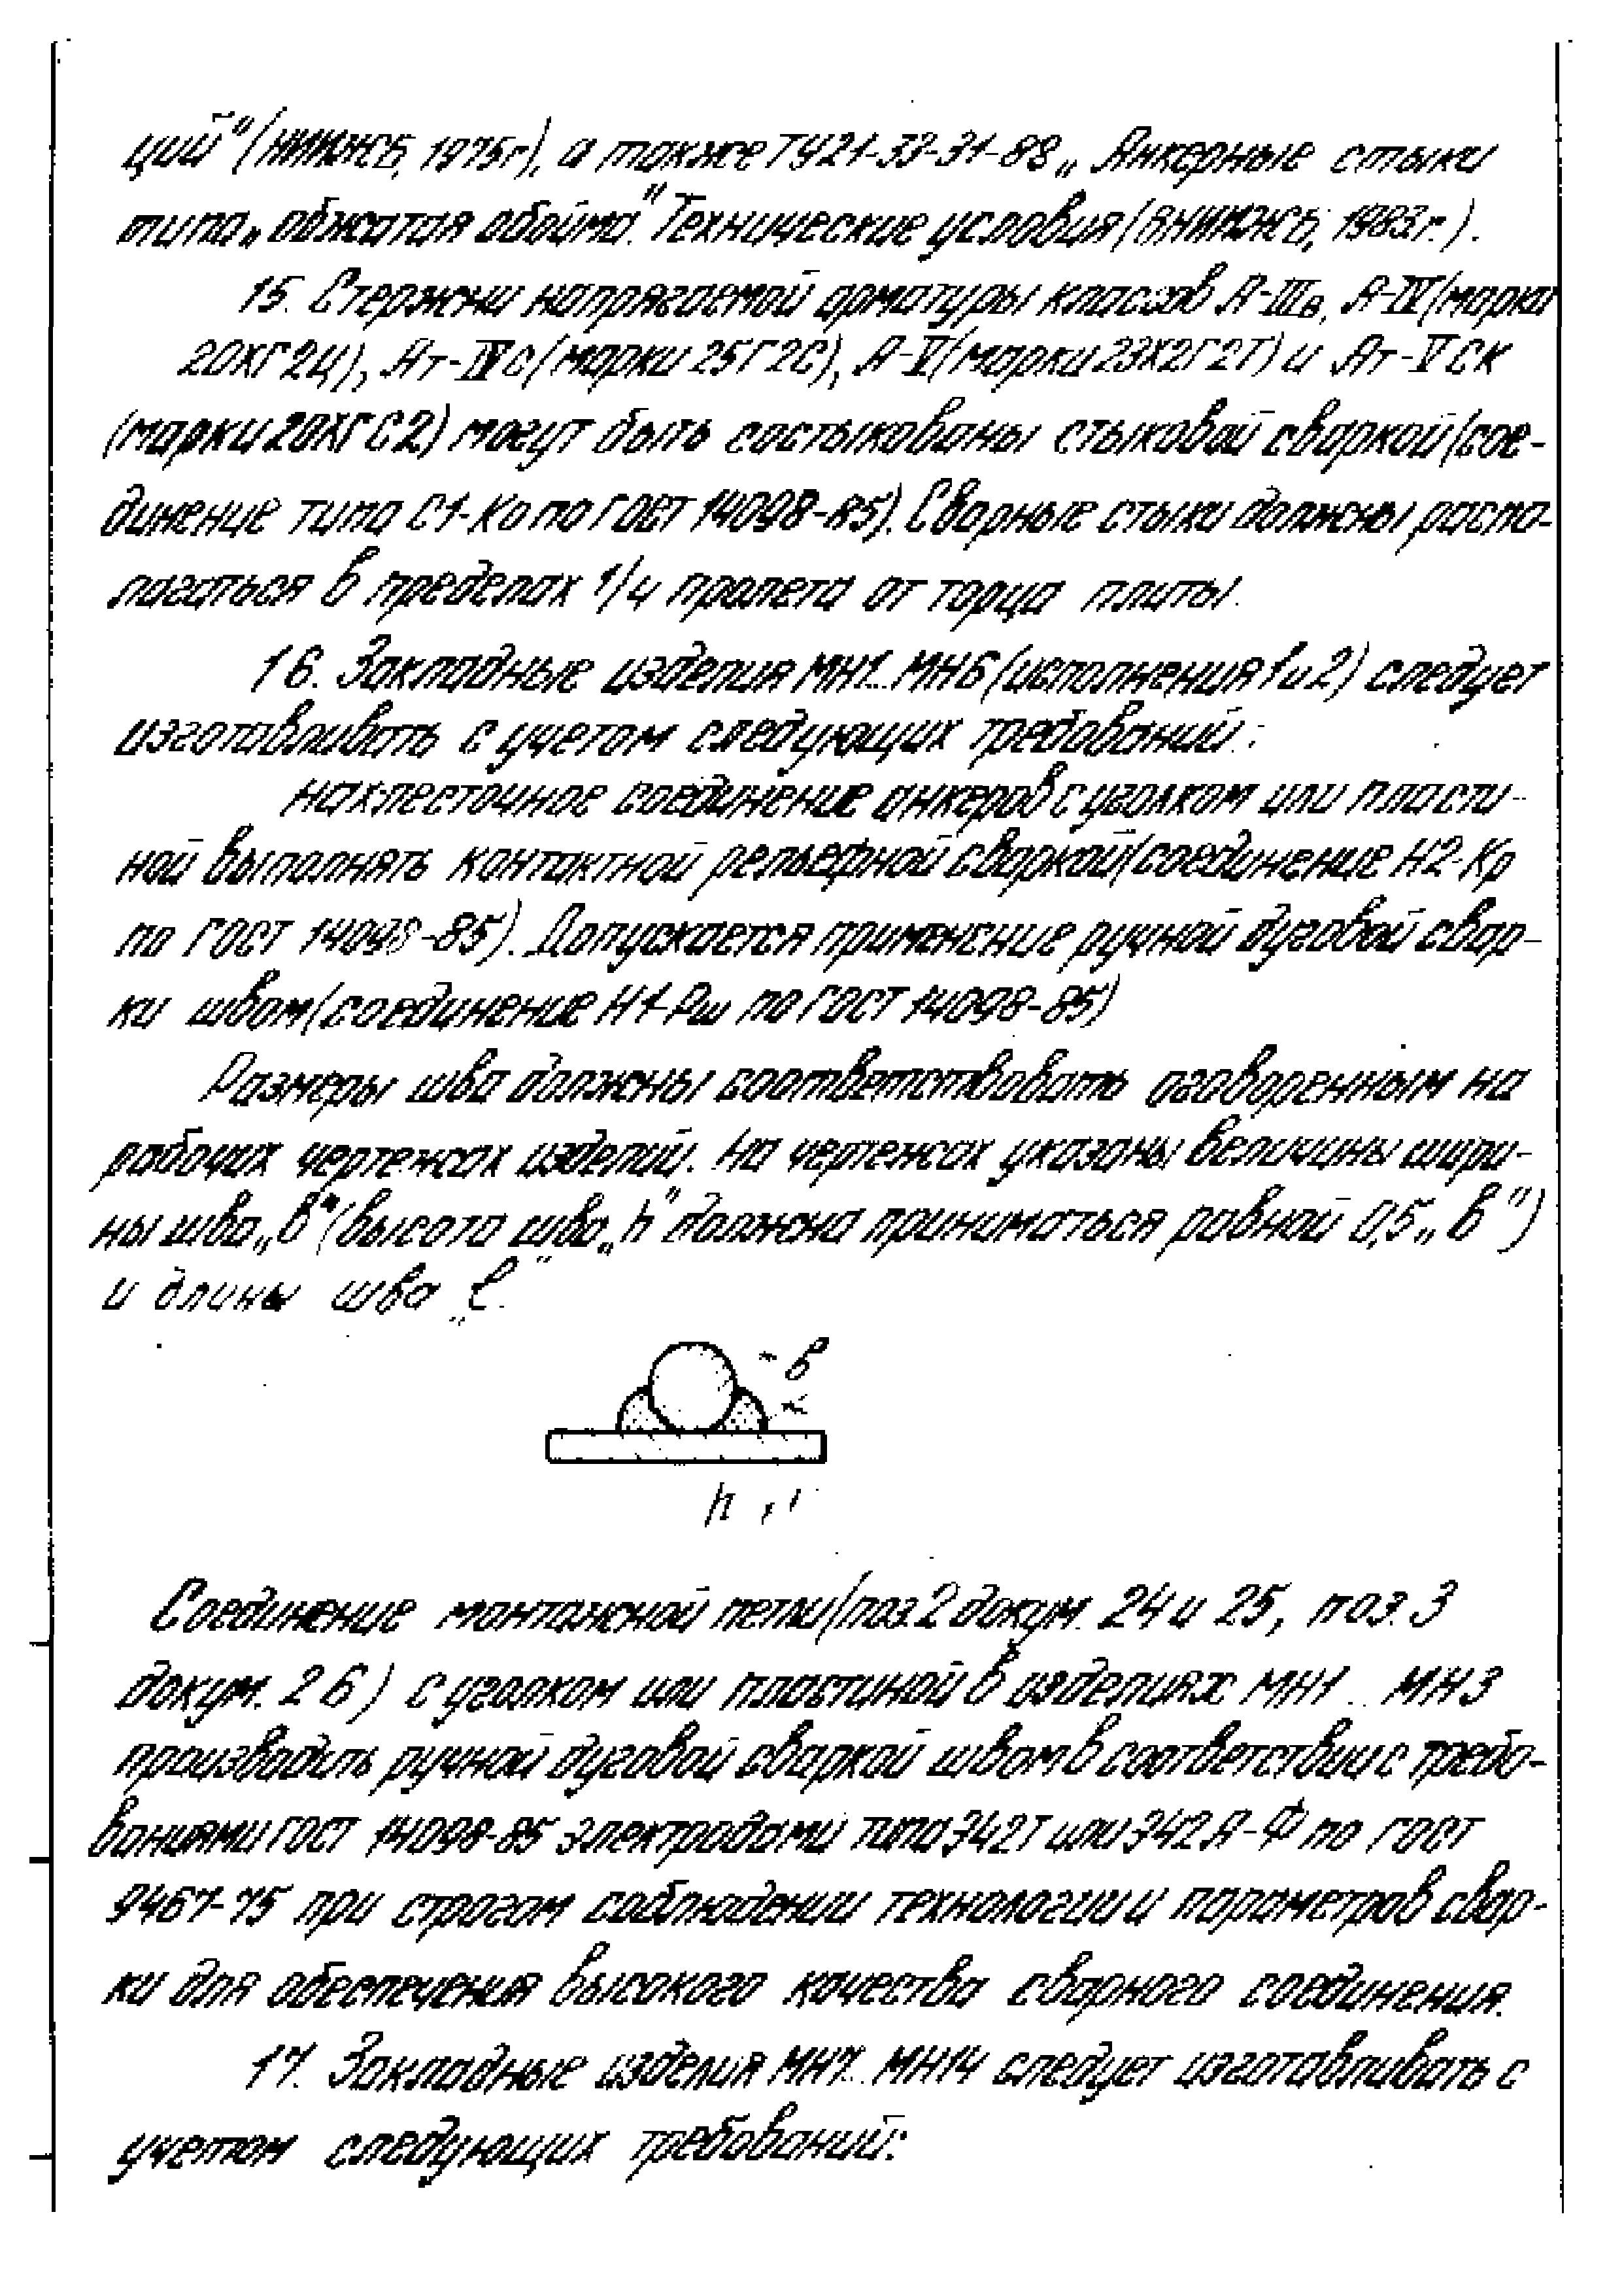 ций" (НИИЖБ, 1975г), а также ТУ21-33-31-88 „Анкерные стыки
типа „обжатая обойма". Технические условия (ВНИИЖБ, 1983г.).
15. Стержни напрягаемой арматуры классов А-IIIв, А-IV (марки
20ХГ2Ц), Ат-IVС (марки 25Г2С), А-V (марки 23Х2Г2Т) и Ат-VСК
(марки 20ХГС2) могут быть состыкованы стыковой сваркой (сое-
динение типа С1-Ко по ГОСТ 14098-85). Сварные стыки должны распо-
лагаться в пределах 1/4 пролета от торца плиты.
16. Закладные изделия МН1...МН6 (исполнения 1 и 2) следует
изготавливать с учетом следующих требований:
нахлесточное соединение анкеров с уголком или пласти-
ной выполнять контактной рельефной сваркой (соединение Н2-Кр
по ГОСТ 14098-85). Допускается применение ручной дуговой свар-
ки швом (соединение Н1-Рш по ГОСТ 14098-85)
Размеры шва должны соответствовать оговоренным на
рабочих чертежах изделий. На чертежах указаны величины шири-
ны шва „в" (высота шва „h" должна приниматься равной 0,5 „в")
и длины шва „ℓ"
в
h
Соединение монтажной петли (поз.2 докум. 24 и 25, поз. 3
докум. 26) с уголком или пластиной в изделиях МН1...МН3
производить ручной дуговой сваркой швом в соответствии с требо-
ваниями ГОСТ 14098-85 электродами типа Э42Т или Э42А-Ф по ГОСТ
9467-75 при строгом соблюдении технологии и параметров свар-
ки для обеспечения высокого качества сварного соединения.
17. Закладные изделия МН7...МН14 следует изготавливать с
учетом следующих требований: